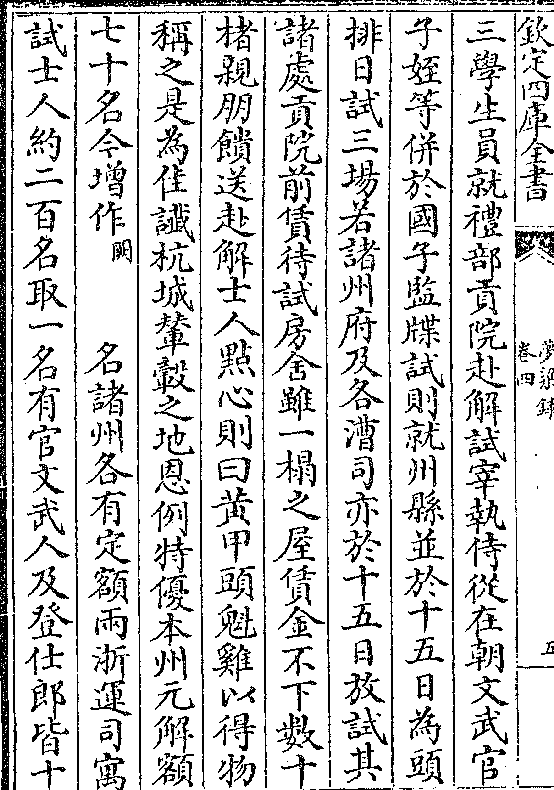 欽定四庫全書
夢粱錄
卷四
五
三學生員就禮部貢院赴解試宰執侍從在朝文武官
子姪等併於國子監牒試則就州縣並於十五日為頭
排日試三場若諸州府及各漕司亦於十五日放試其
諸處貢院前賃待試房舍雖一榻之屋賃金不下數十
楮親朋饋送赴解士人點心則曰黃甲頭魁雞以得物
稱之是為佳讖杭城輦轂之地恩例特優本州元解額
七十名今增作闕　　名諸州各有定額兩浙運司寓
試士人約二百名取一名有官文武人及登仕郎皆十